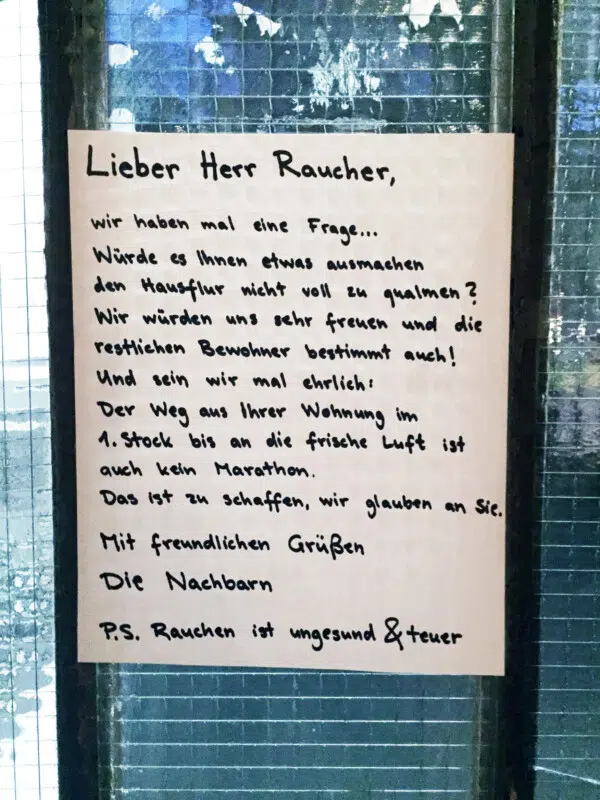 Lieber Herr Raucher,
wir haben mal eine Frage...
Würde es Ihnen etwas ausmachen
den Hausflur nicht voll zu qualmen?
Wir würden uns sehr freuen und die
restlichen Bewohner bestimmt auch!
Und sein wir mal ehrlich:
Der Weg aus Ihrer Wohnung im
1. Stock bis an die frische Luft ist
auch kein Marathon.
Das ist zu schaffen, wir glauben an Sie.
Mit freundlichen Grüßen
Die Nachbarn
P.S. Rauchen ist ungesund & teuer